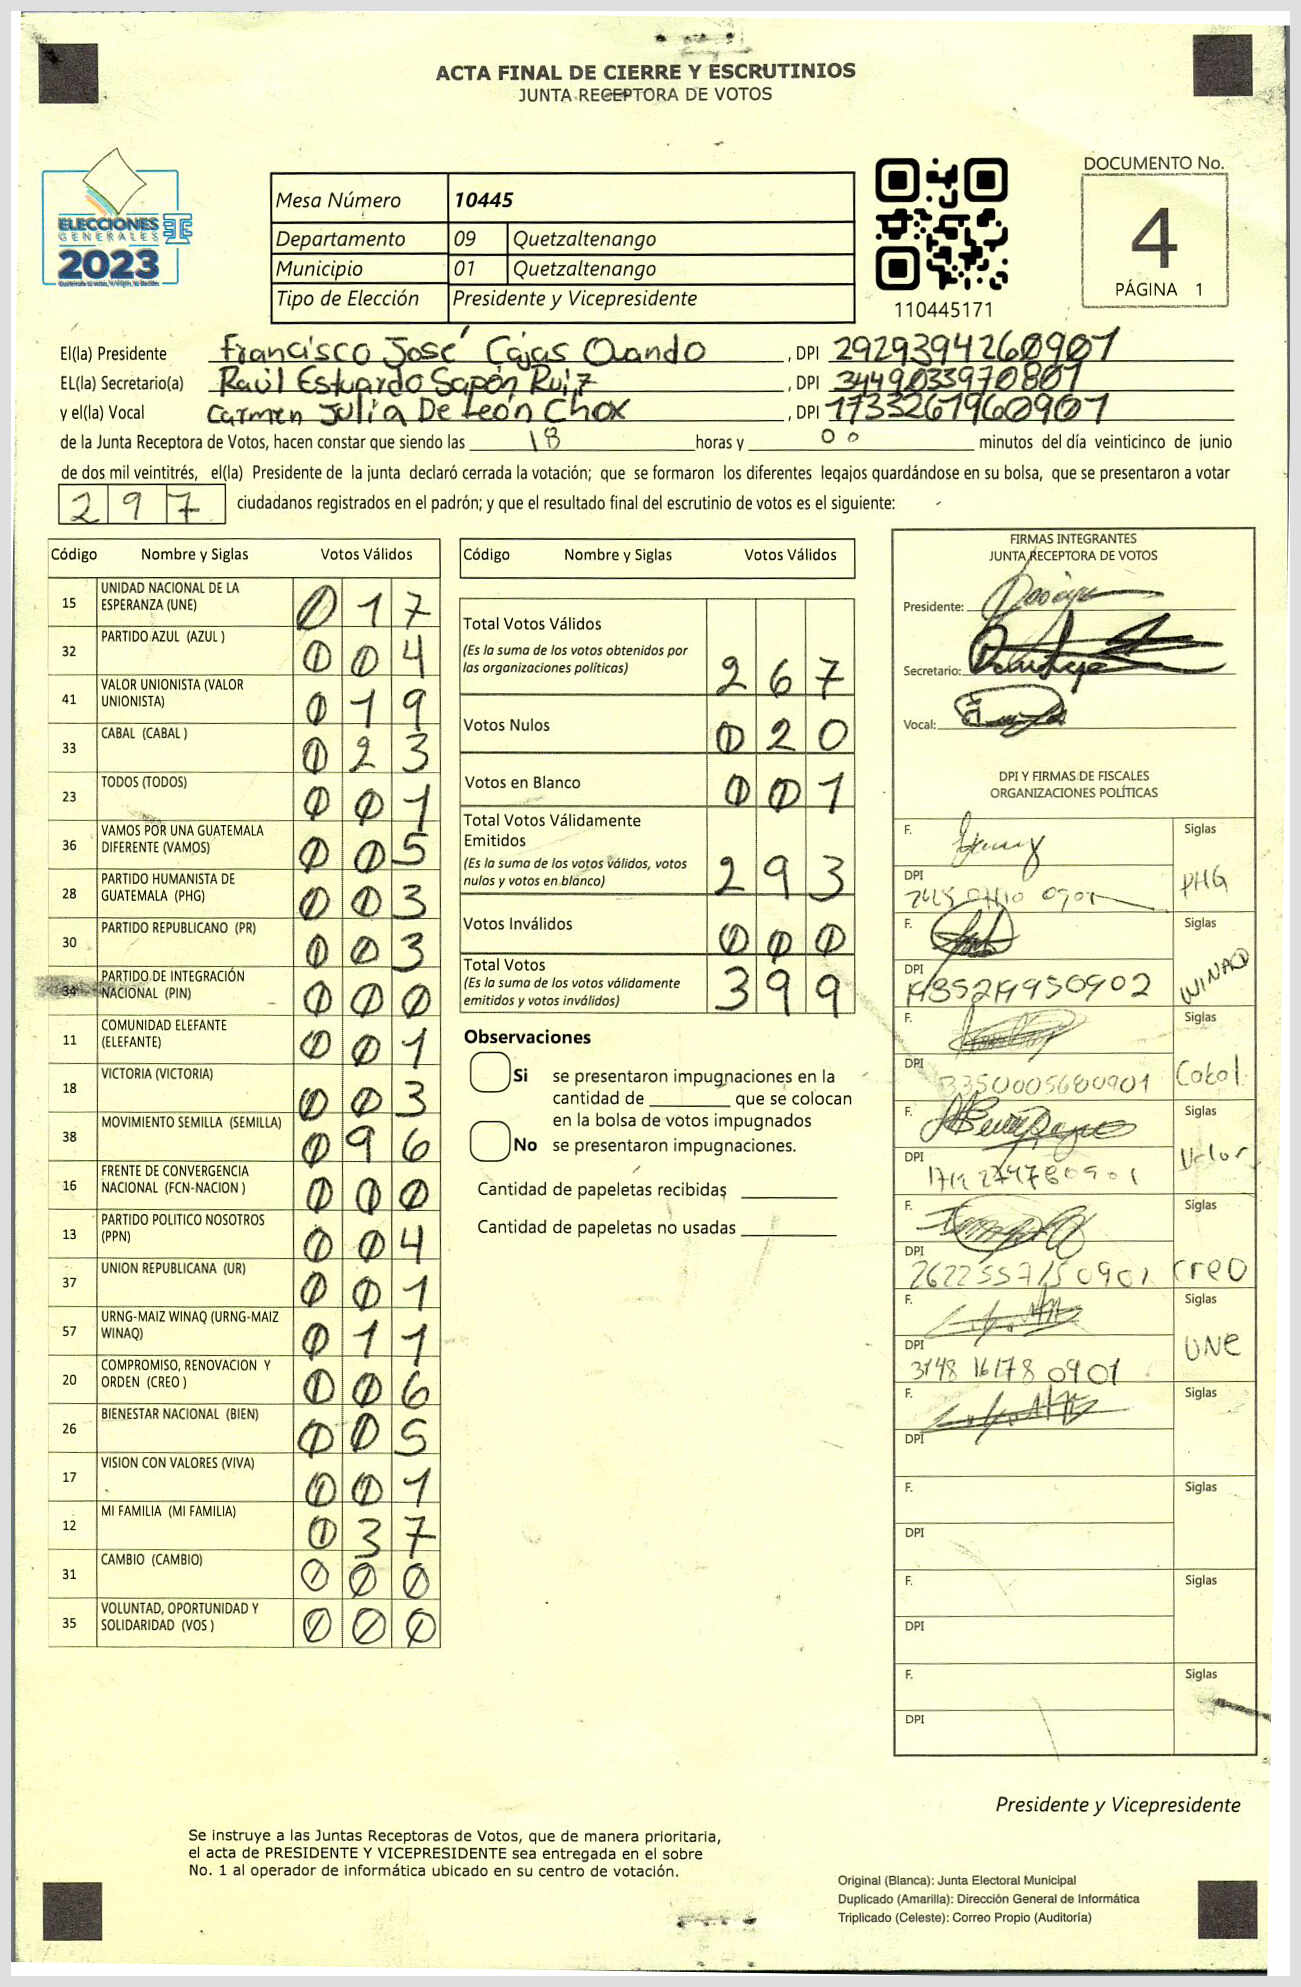 ACTA FINAL DE CIERRE Y ESCRUTINIOS
JUNTA RECEPTORA DE VOTOS
ELECCIONES
GENERALES
2023
Mesa Número 10445
Departamento 09 Quetzaltenango
Municipio 01 Quetzaltenango
Tipo de Elección Presidente y Vicepresidente
110445171
DOCUMENTO No.
4
PÁGINA 1
El(la) Presidente Francisco José Cajas Ovando , DPI 2929394260901
EL(la) Secretario(a) Raúl Estuardo Sapón Ruiz , DPI 3449033970801
y el(la) Vocal Carmen Julia De León Chox , DPI 1733267960901
de la Junta Receptora de Votos, hacen constar que siendo las 18 horas y 00 minutos del día veinticinco de junio
de dos mil veintitrés, el(la) Presidente de la junta declaró cerrada la votación; que se formaron los diferentes legajos quardándose en su bolsa, que se presentaron a votar
297 ciudadanos registrados en el padrón; y que el resultado final del escrutinio de votos es el siguiente:
Código Nombre y Siglas Votos Válidos
15 UNIDAD NACIONAL DE LA
ESPERANZA (UNE) 017
32 PARTIDO AZUL (AZUL ) 004
41 VALOR UNIONISTA (VALOR
UNIONISTA) 019
33 CABAL (CABAL ) 023
23 TODOS (TODOS) 001
36 VAMOS POR UNA GUATEMALA
DIFERENTE (VAMOS) 005
28 PARTIDO HUMANISTA DE
GUATEMALA (PHG) 003
30 PARTIDO REPUBLICANO (PR) 003
34 PARTIDO DE INTEGRACIÓN
NACIONAL (PIN) 000
11 COMUNIDAD ELEFANTE
(ELEFANTE) 001
18 VICTORIA (VICTORIA) 003
38 MOVIMIENTO SEMILLA (SEMILLA) 096
16 FRENTE DE CONVERGENCIA
NACIONAL (FCN-NACION ) 000
13 PARTIDO POLITICO NOSOTROS
(PPN) 004
37 UNION REPUBLICANA (UR) 001
57 URNG-MAIZ WINAQ (URNG-MAIZ
WINAQ) 011
20 COMPROMISO, RENOVACION Y
ORDEN (CREO ) 006
26 BIENESTAR NACIONAL (BIEN) 005
17 VISION CON VALORES (VIVA) 001
12 MI FAMILIA (MI FAMILIA) 037
31 CAMBIO (CAMBIO) 000
35 VOLUNTAD, OPORTUNIDAD Y
SOLIDARIDAD (VOS ) 000
Código Nombre y Siglas Votos Válidos
Total Votos Válidos
(Es la suma de los votos obtenidos por
las organizaciones políticas) 267
Votos Nulos 020
Votos en Blanco 001
Total Votos Válidamente
Emitidos
(Es la suma de los votos válidos, votos
nulos y votos en blanco) 293
Votos Inválidos 000
Total Votos
(Es la suma de los votos válidamente
emitidos y votos inválidos) 399
Observaciones
Si se presentaron impugnaciones en la
cantidad de que se colocan
en la bolsa de votos impugnados
No se presentaron impugnaciones.
Cantidad de papeletas recibidas
Cantidad de papeletas no usadas
FIRMAS INTEGRANTES
JUNTA RECEPTORA DE VOTOS
Presidente:
Secretario:
Vocal:
DPI Y FIRMAS DE FISCALES
ORGANIZACIONES POLÍTICAS
F. Siglas
DPI PHG
F. Siglas
DPI WINAQ
F. Siglas
DPI 3350005680901 Cabal
F. Siglas
DPI Valor
F. Siglas
DPI 2622557150901 creo
F. Siglas
DPI 3148 16178 0901 UNE
F. Siglas
DPI
F. Siglas
DPI
F. Siglas
DPI
F. Siglas
DPI
Presidente y Vicepresidente
Se instruye a las Juntas Receptoras de Votos, que de manera prioritaria,
el acta de PRESIDENTE Y VICEPRESIDENTE sea entregada en el sobre
No. 1 al operador de informática ubicado en su centro de votación.
Original (Blanca): Junta Electoral Municipal
Duplicado (Amarilla): Dirección General de Informática
Triplicado (Celeste): Correo Propio (Auditoría)